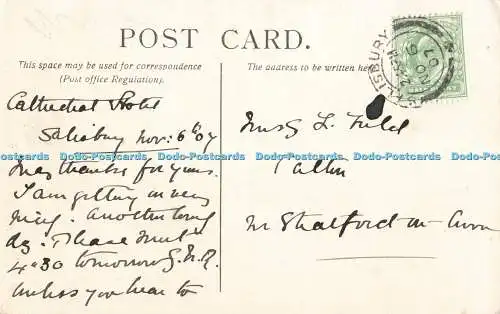 POST CARD.
This space may be used for correspondence
(Post office Regulation).
The address to be written here
SALISBURY
NO 6
07
Cathedral Hotel
Salisbury Nov: 6th 07
Many thanks for yours.
I am getting on very
nicely. Another
day. Please meet
4.30 tomorrow G.W.R.
unless you hear to
L. Field
nr Stratford on Avon
Dodo-Postcards Dodo-Postcards Dodo-Postcards Dodo-Postcards Dodo-Postcards Dodo-Postcards